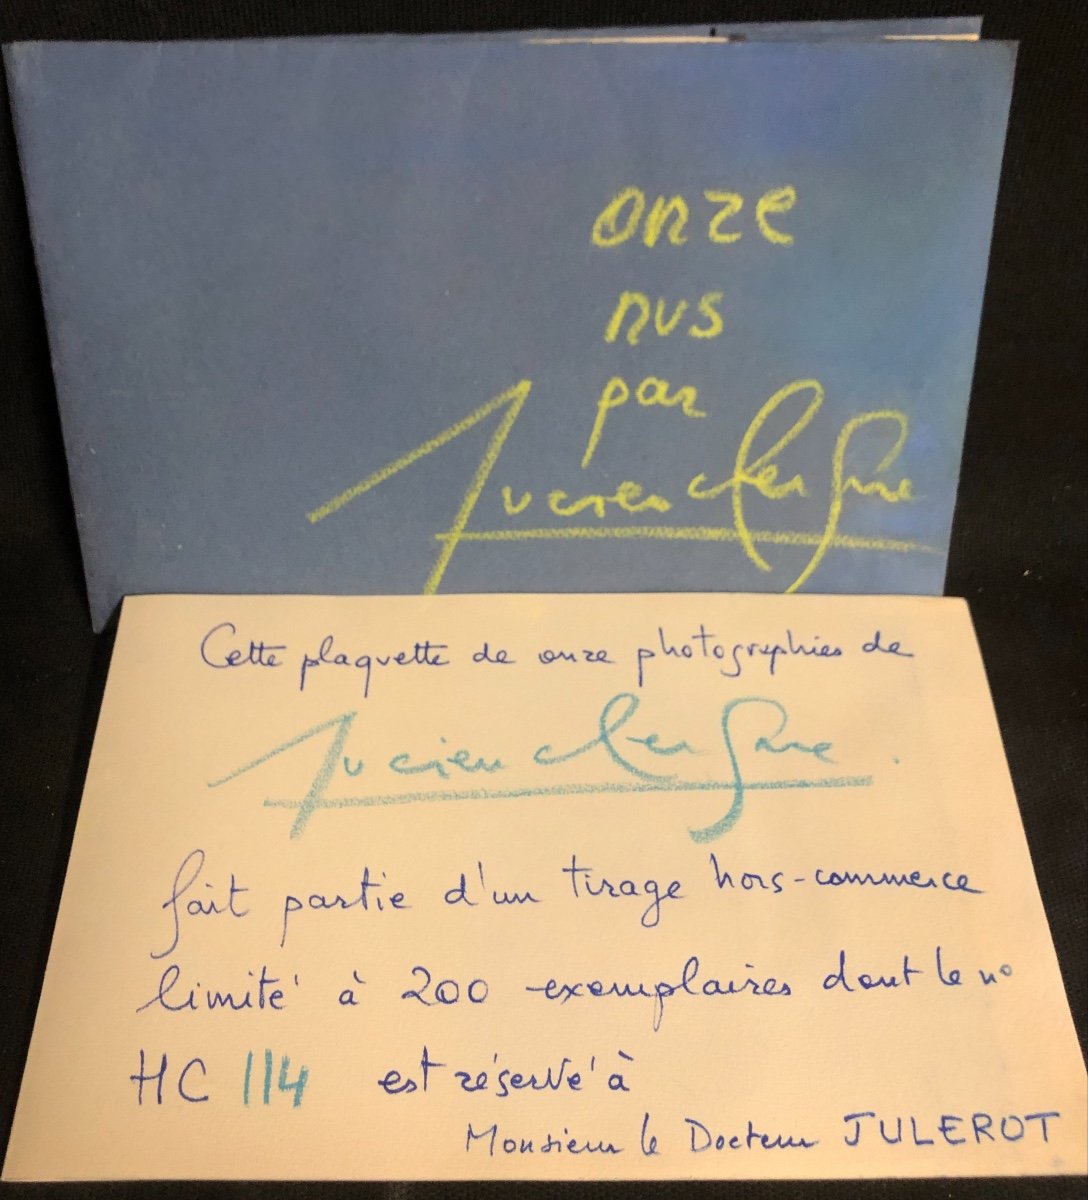 onze
nus
par
Lucien Clergue
Cette plaquette de onze photographies de
Lucien Clergue.
fait partie d'un tirage hors-commerce
limité à 200 exemplaires dont le n°
HC 114 est réservé à
Monsieur le Docteur JULEROT